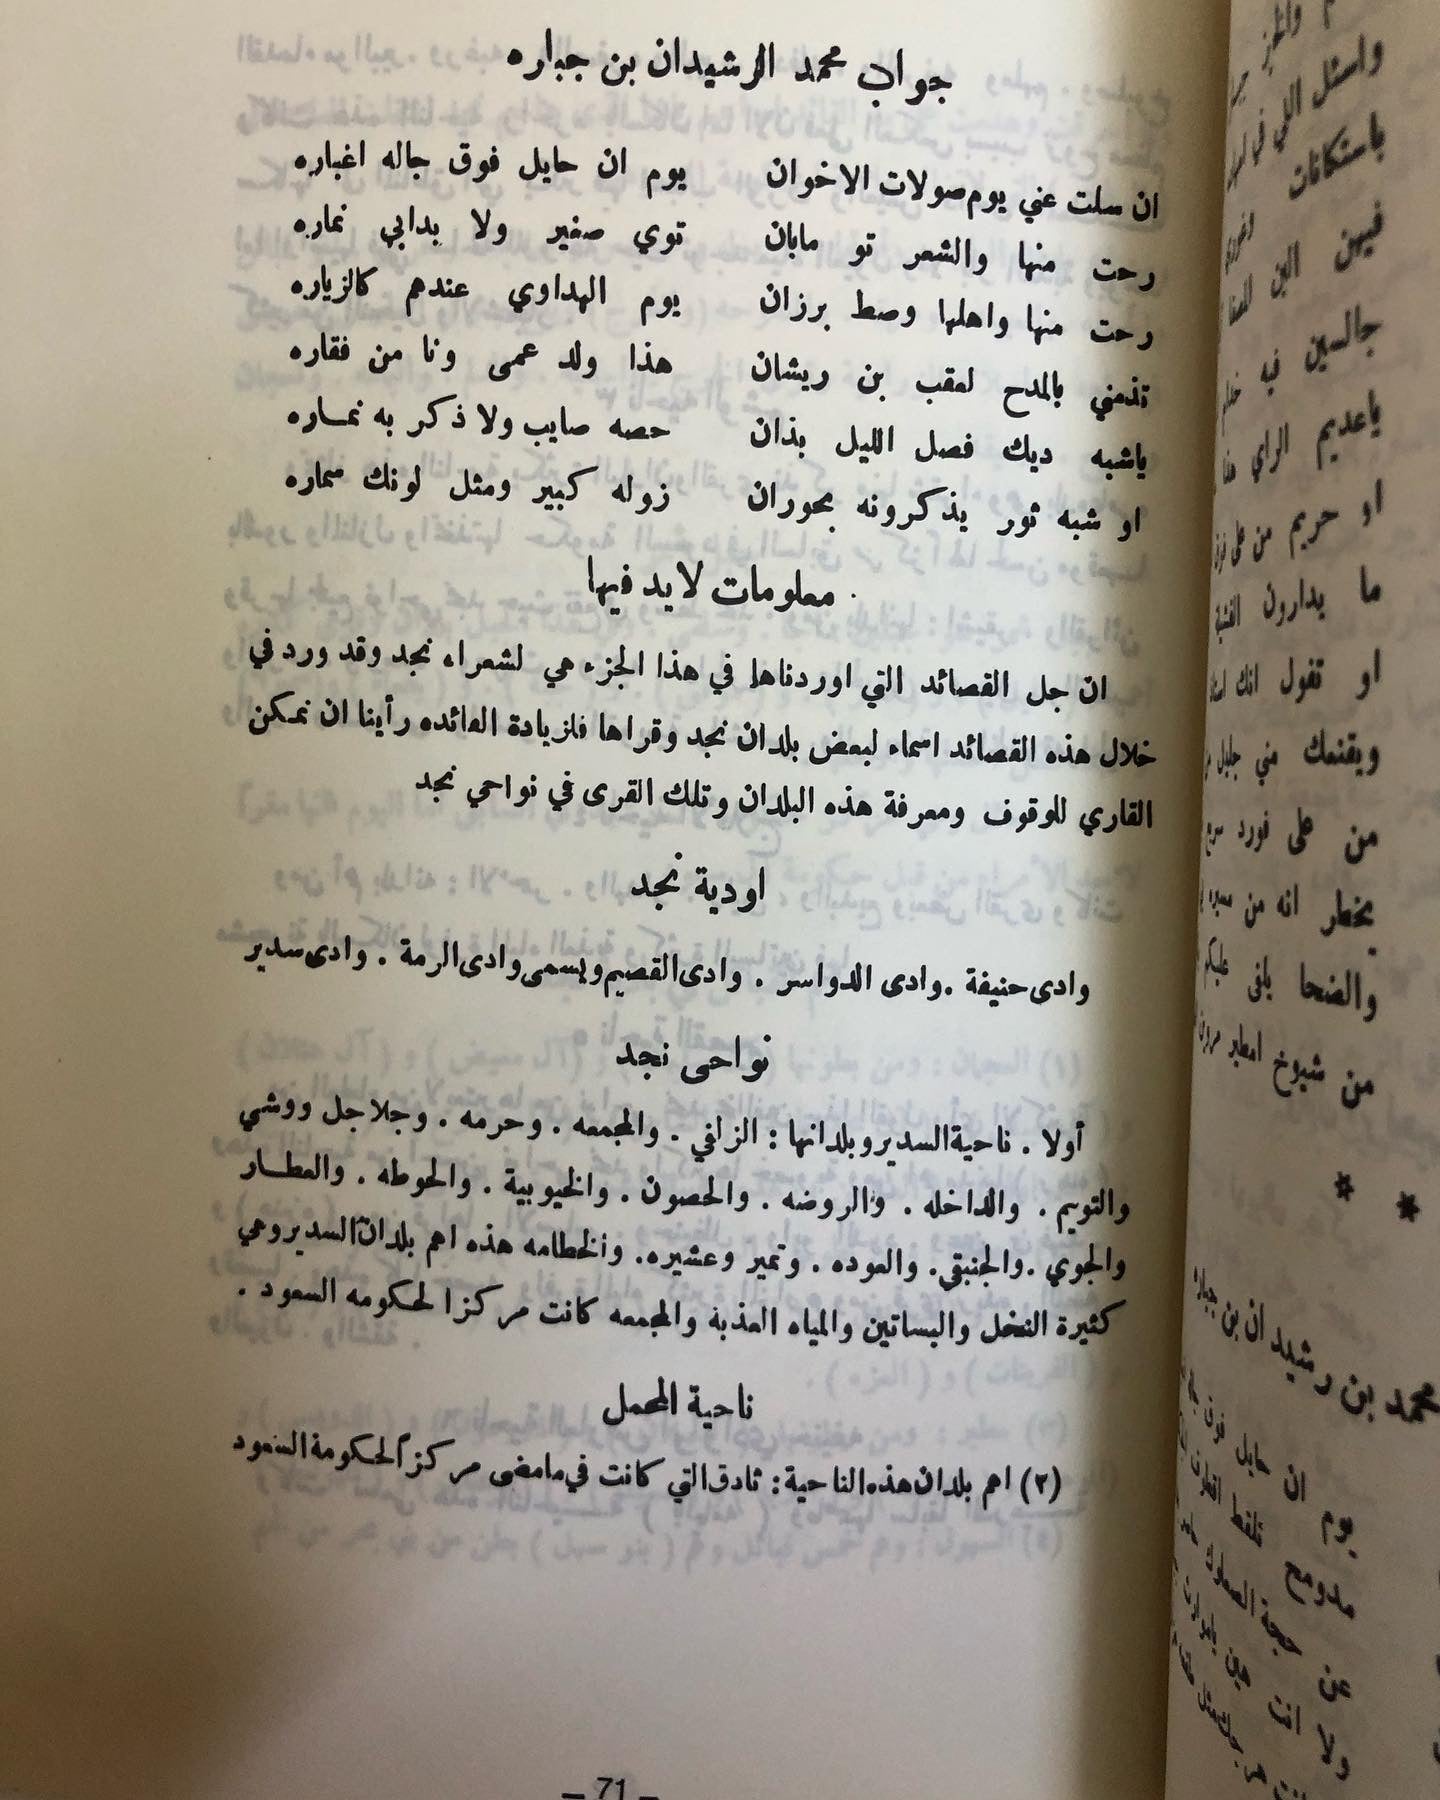 جواب محمد الرشيدان بن جباره
ان سلت عني يوم صولات الاخوان يوم ان حايل فوق جاله اغباره
رحت منها والشعر تو مابان توي صغير ولا بدابي نماره
رحت منها واهلها وصط برزان يوم الهداوي عندهم كالزياره
تذمني بالمدح لعقب بن ريشان هذا ولد عمى ونا من فقاره
ياشبه ديك فصل الليل بذان حصه صايب ولا ذكر به نمساره
او شبه ثور يذكرونه بحوران زوله كبير ومثل لونك سماره
معلومات لابد فيها
ان جل القصائد التي اوردناها في هذا الجزء هي لشعراء نجد وقد ورد في
خلال هذه القصائد اسماء لبعض بلدان نجد وقراها فلزيادة الفائده رأينا ان نمكن
القاري للوقوف ومعرفة هذه البلدان وتلك القرى في نواحي نجد
اودية نجد
وادى حنيفة . وادى الدواسر . وادى القصيم ويسمى وادى الرمة . وادى سدير
نواحى نجد
أولا . ناحية السدير وبلدانها : الزافي . والمجمعه . وحرمه . وجلاجل ووشي
والتويم . والداخله . والروضه . والحصون . والخيوبية . والحوطه . والعطار
والجوي . والجنبقي . والعوده . وتمير وعشيره . والخطامه هذه اهم بلدان السدير وهي
كثيرة النخل والبساتين والمياه العذبة والمجمعه كانت مركزا لحكومه السعود .
ناحية المحمل
(٢) اهم بلدان هذه الناحية : ثادق التي كانت في مامضى مركز الحكومة السعود
— 71 —
واسئل اللي في
باستكانات
فيهن الهن
جالسين فيه
ياعديم الراي
او حريم من على
ما يدارون
او تقول انك
ويقنعك مني جليل
من على فورد
يخطر انه من
والضحا يلفى عليكم
من شيوخ امطير
* *
محمد بن رشيد ان بن جباره
يوم ان حايل فوق
عن
ولا انت هين